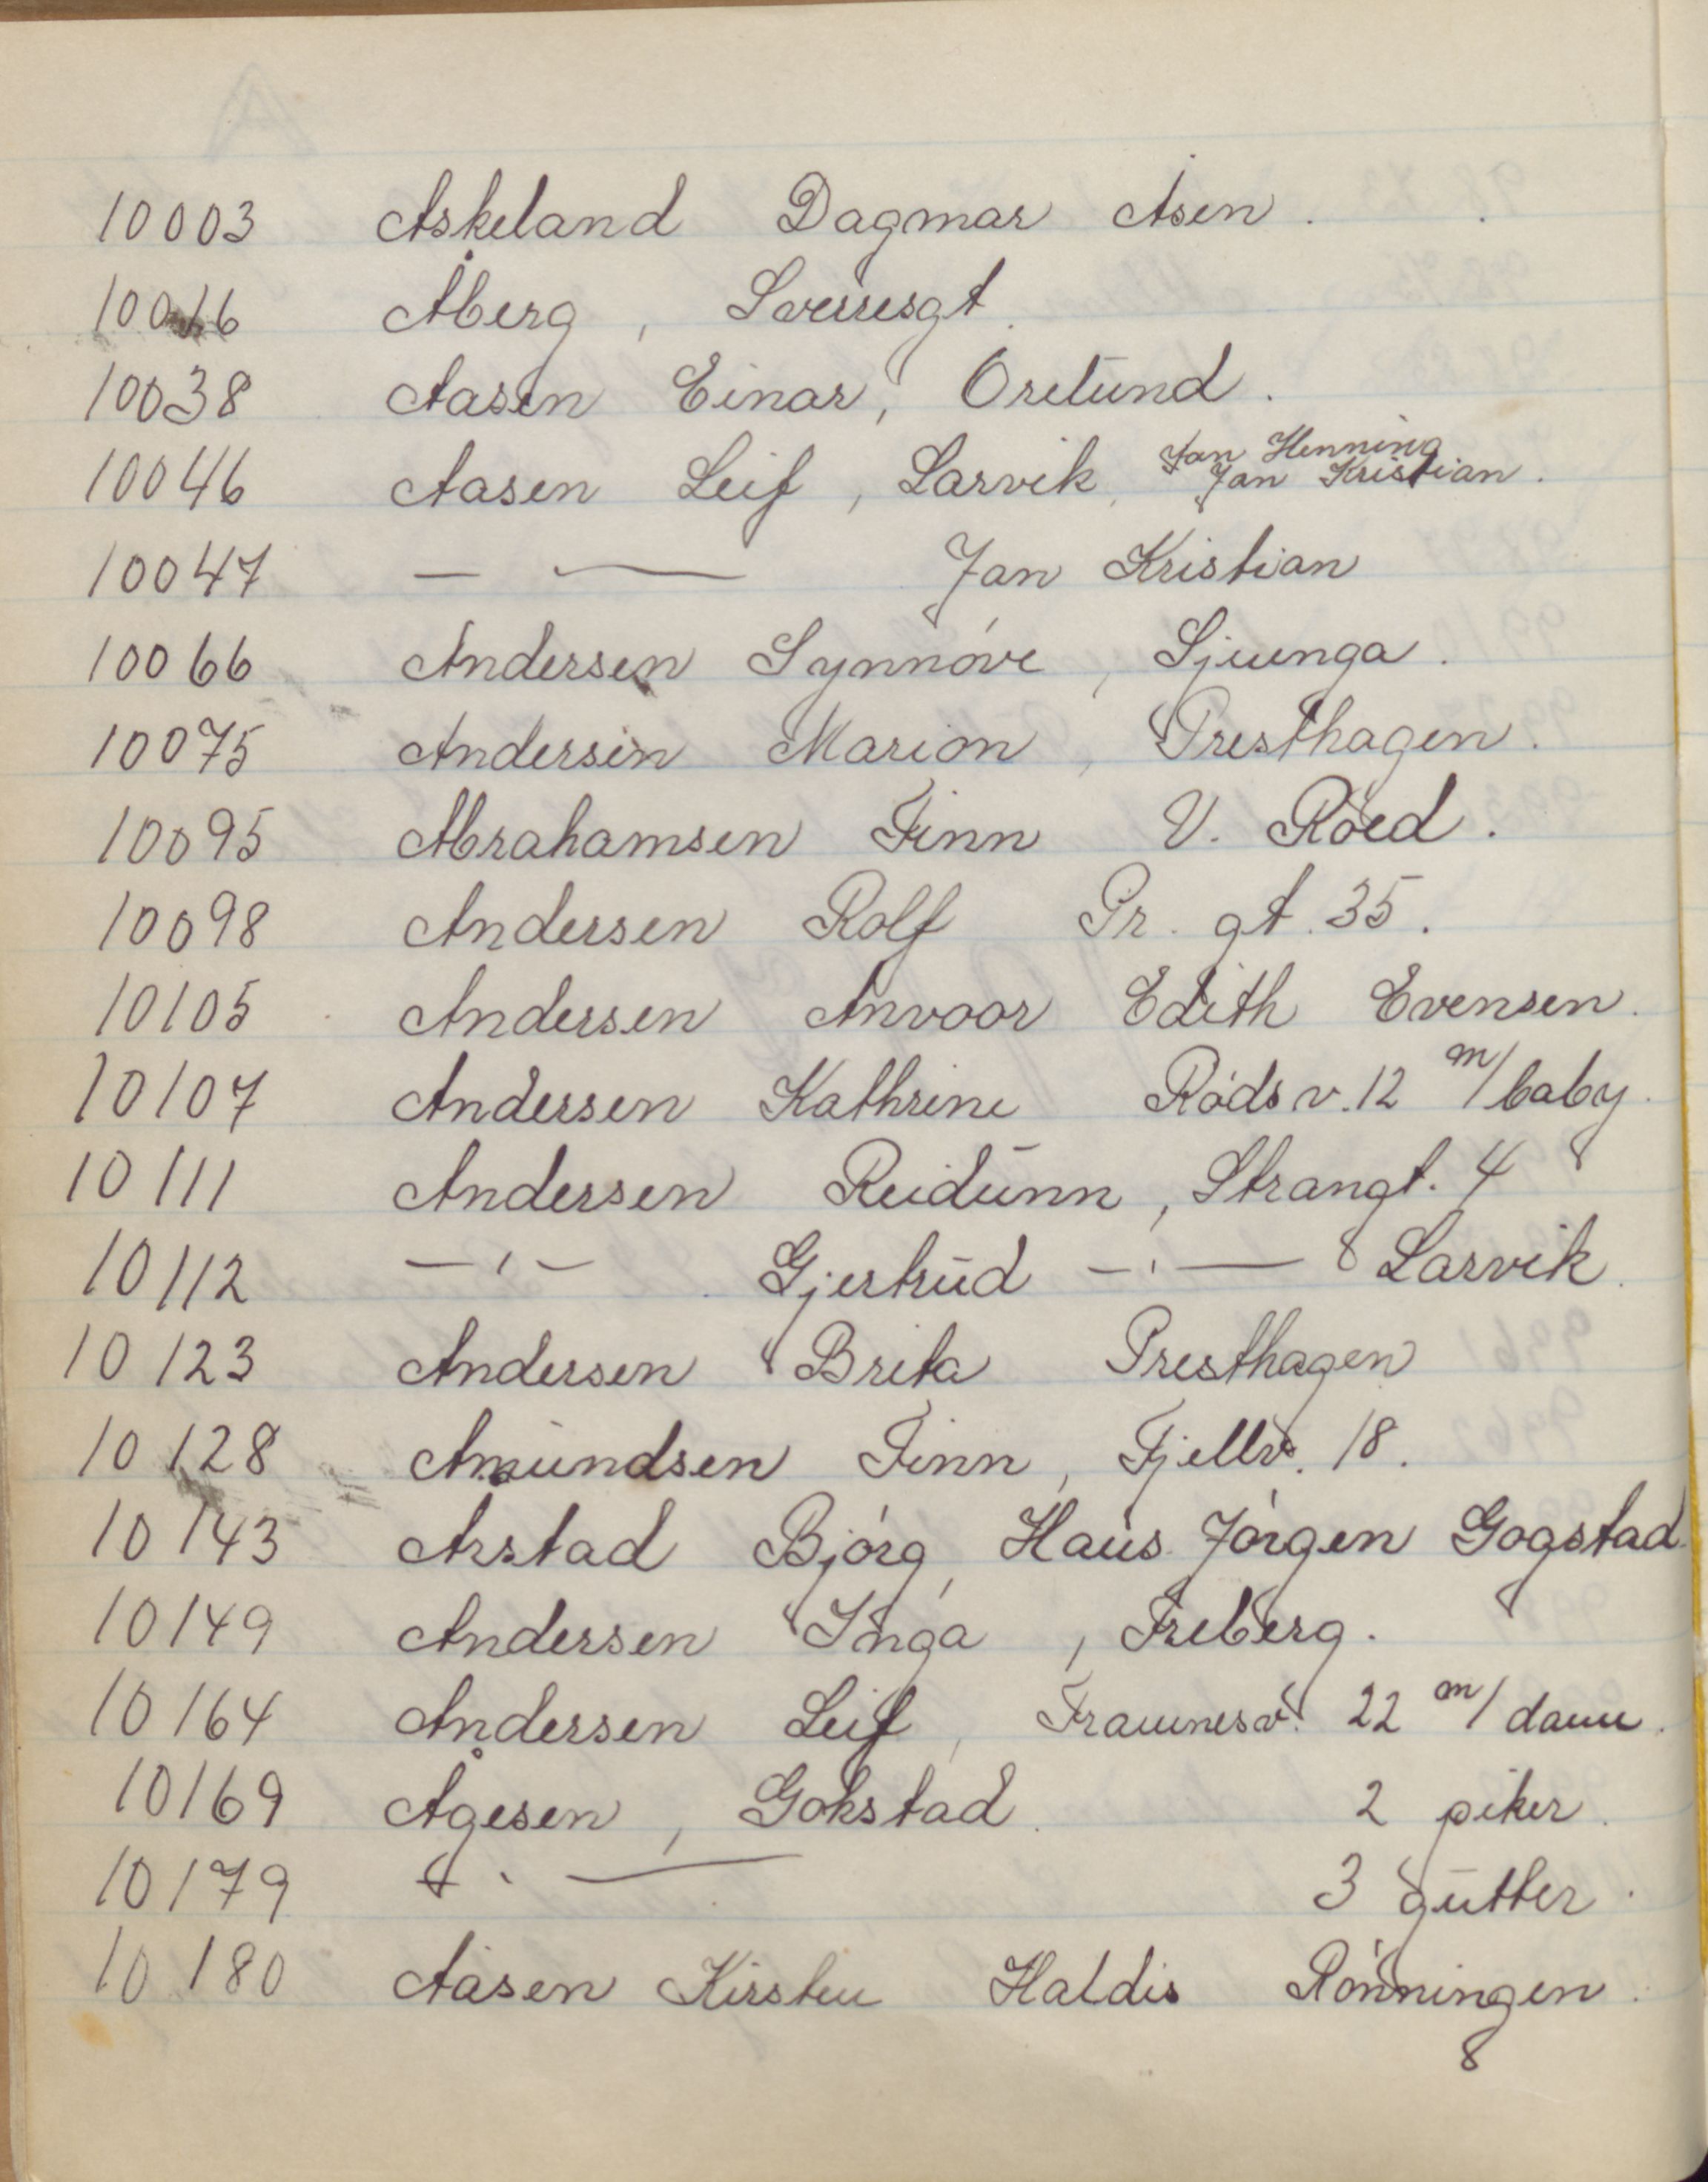 10003 Askeland Dagmar Åsen.
10016 Åberg, Sverresgt.
10038 Aasen Einar, Orelund.
10046 Aasen Leif, Larvik, Jan Henning
Jan Kristian.
10047 — — Jan Kristian
10066 Andersen Synnóve, Sjuenga.
10075 Andersen Marion, Presthagen.
10095 Abrahamsen Finn V. Röed.
10098 Andersen Rolf Pr. gt. 35.
10105 Andersen Anvoor Edith Evensen.
10107 Andersen KathrineRódsv. 12 m/baby.
10111 Andersen Reidunn, Strangt. 4
10112 —"— Gjertrud —"— Larvik.
10123 Andersen Brita Presthagen
10128 Amundsen Finn, Fjellv. 18.
10143 Årstad Bjórg, Haus Jórgen Gogstad.
10149 Andersen Inga, Freberg.
10164 Andersen Leif, Framnesv. 22 m/dame.
10169 Ågesen, Gokstad. 2 piker.
10179 — " — 3 gutter.
10180 Aasen Kirsten Haldis Rónningen.